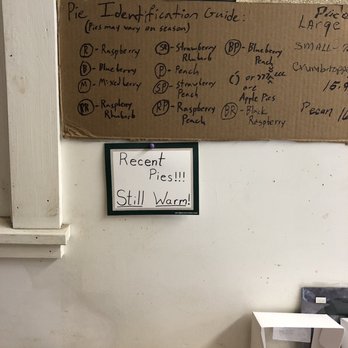 Pie Identification Guide:
(Pies may vary on season)
R - Raspberry
B - Blueberry
M - Mixed berry
RR - Raspberry Rhubarb
SR - Strawberry Rhubarb
P - Peach
SP - Strawberry Peach
RP - Raspberry Peach
BP - Blueberry Peach
or
are
Apple Pies
BR - Black Raspberry
Large
Small -
Crumb top
15.9
Pecan
Recent
Pies!!!
Still Warm!